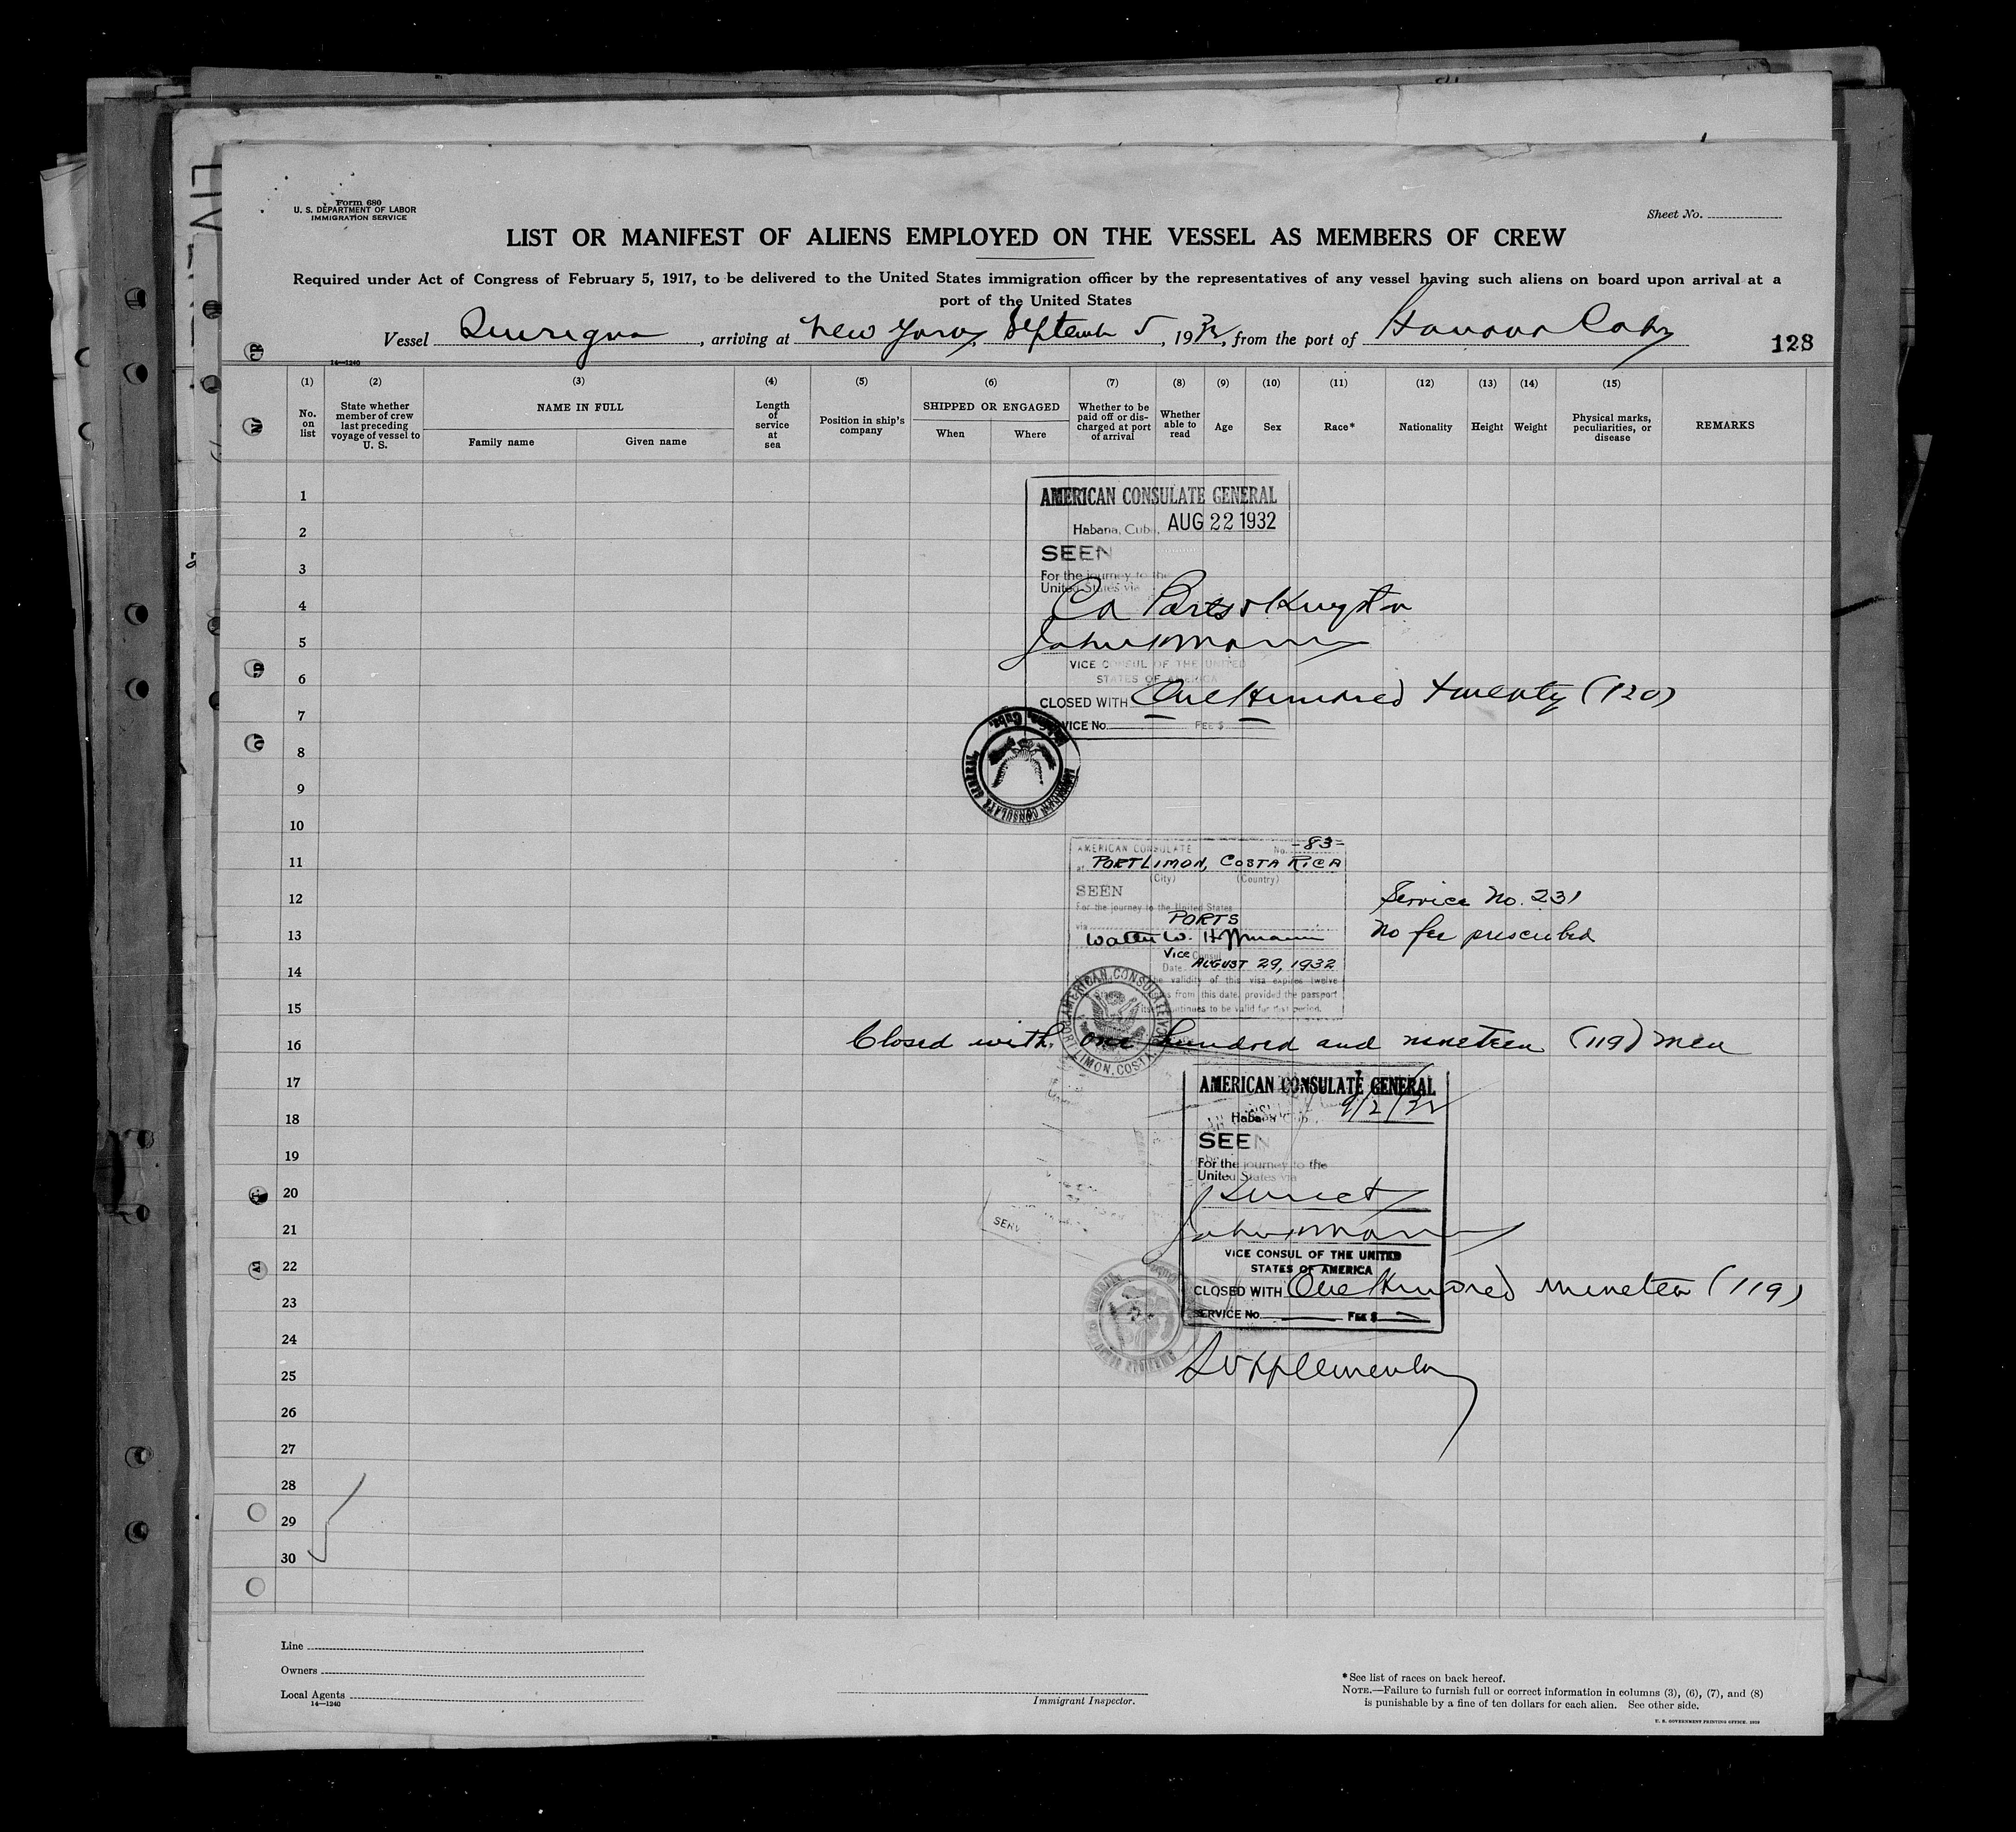 Form 680
U. S. DEPARTMENT OF LABOR
IMMIGRATION SERVICE
Sheet No.
LIST OR MANIFEST OF ALIENS EMPLOYED ON THE VESSEL AS MEMBERS OF CREW
Required under Act of Congress of February 5, 1917, to be delivered to the United States immigration officer by the representatives of any vessel having such aliens on board upon arrival at a
port of the United States
Vessel Quirigua, arriving at New York, September 5, 1932, from the port of Havana Cuba
128
14—1240
(1) (2) (3) (4) (5) (6) (7) (8) (9) (10) (11) (12) (13) (14) (15)
No. on list
State whether member of crew last preceding voyage of vessel to U. S.
NAME IN FULL
Family name
Given name
Length of service at sea
Position in ship's company
SHIPPED OR ENGAGED
When
Where
Whether to be paid off or discharged at port of arrival
Whether able to read
Age
Sex
Race*
Nationality
Height
Weight
Physical marks, peculiarities, or disease
REMARKS
1
2
3
4
5
6
7
8
9
10
11
12
13
14
15
16
17
18
19
20
21
22
23
24
25
26
27
28
29
30
AMERICAN CONSULATE GENERAL
Habana, Cuba, AUG 22 1932
SEEN
For the journey to the
United States via
Ca Ports & Kingston
VICE CONSUL OF THE UNITED
STATES OF AMERICA
CLOSED WITH One Hundred twenty (120)
SERVICE No. FEE $
AMERICAN CONSULATE No. -83-
at PORT LIMON, COSTA RICA
(City) (Country)
SEEN
For the journey to the United States
via PORTS
Walter W. Hoffmann
Vice Consul
Date AUGUST 29, 1932
The validity of this visa expires twelve
months from this date, provided the passport
continues to be valid for that period.
Service No. 231
No fee prescribed
AMERICAN CONSULATE
PORT LIMON, COSTA
Closed with one hundred and nineteen (119) men
AMERICAN CONSULATE GENERAL
Habana, Cuba, 9/2/32
SEEN
For the journey to the
United States via
Direct
VICE CONSUL OF THE UNITED
STATES OF AMERICA
CLOSED WITH One Hundred Nineteen (119)
SERVICE No. FEE $
Supplementary
SERV
Line
Owners
Local Agents
14—1240
Immigrant Inspector.
*See list of races on back hereof.
NOTE.—Failure to furnish full or correct information in columns (3), (6), (7), and (8)
is punishable by a fine of ten dollars for each alien. See other side.